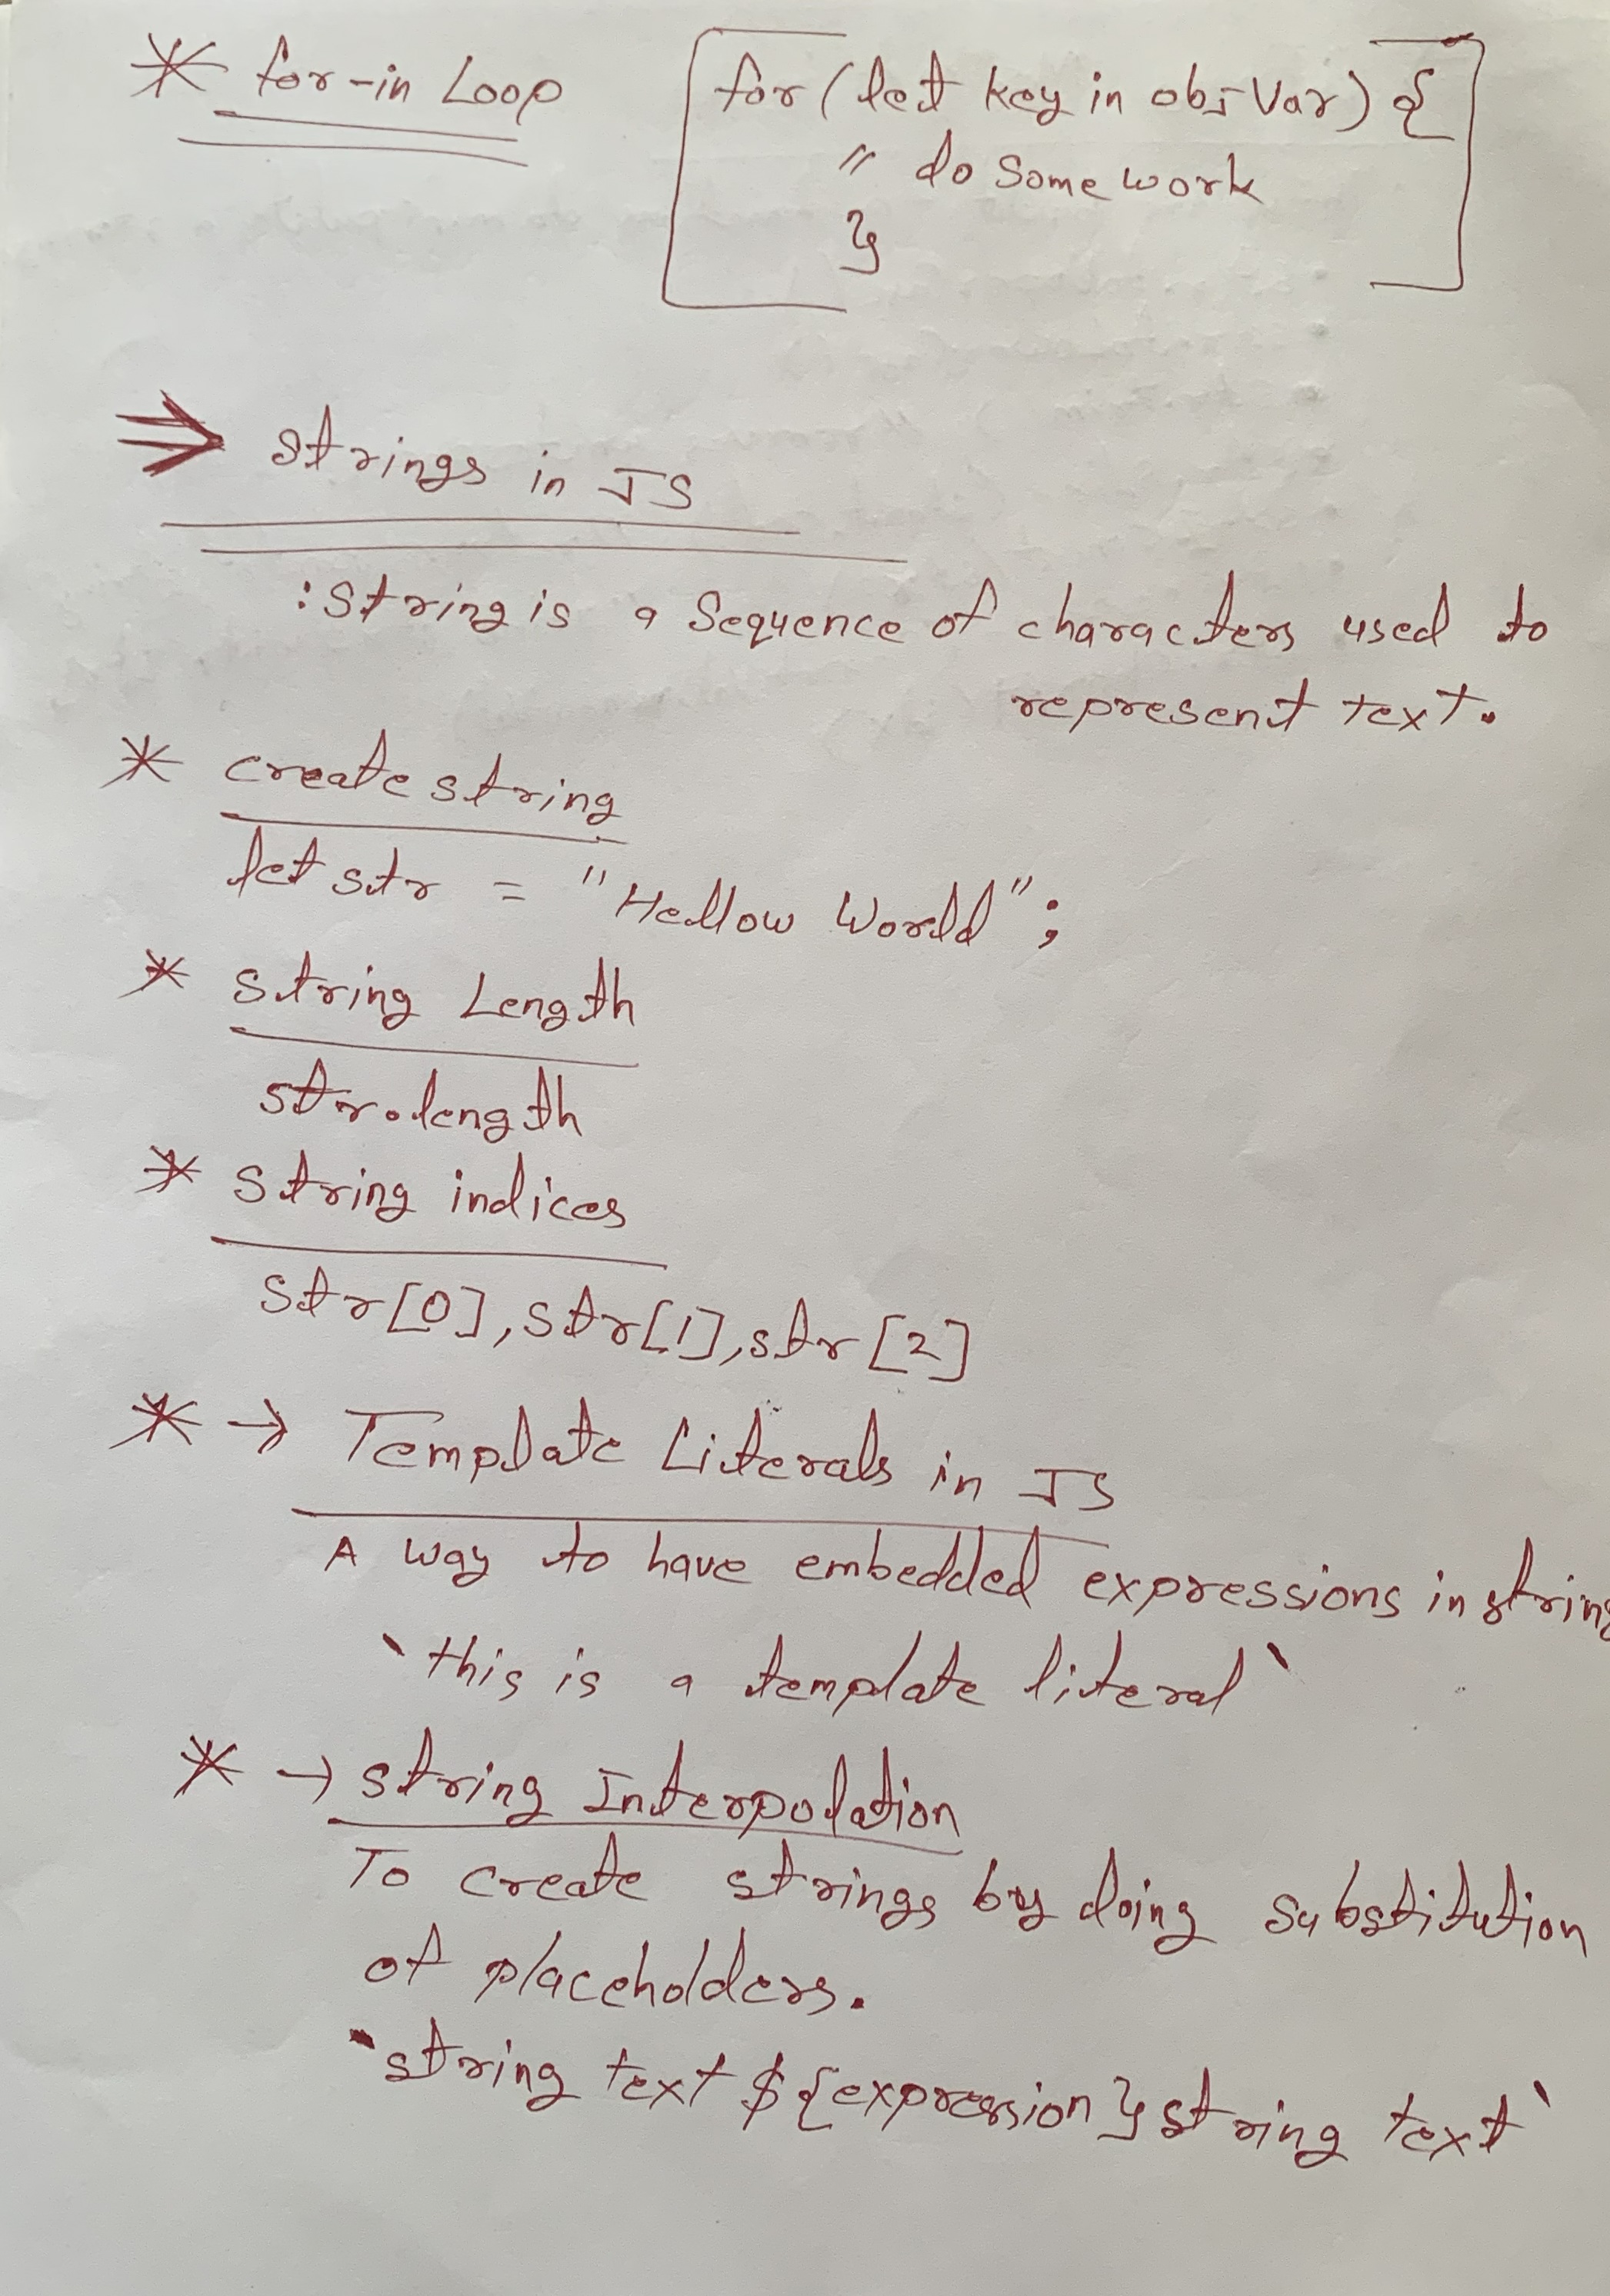 * for-in Loop
for (let key in objVar) {
// do some work
}
⇒ Strings in JS
: String is a Sequence of characters used to
represent text.
* create string
let str = "Hellow World";
* string Length
str.length
* string indices
str[0], str[1], str[2]
* → Template Literals in JS
A way to have embedded expressions in string
`this is a template literal`
* → string Interpolation
To create strings by doing substitution
of placeholders.
`string text ${expression} string text`